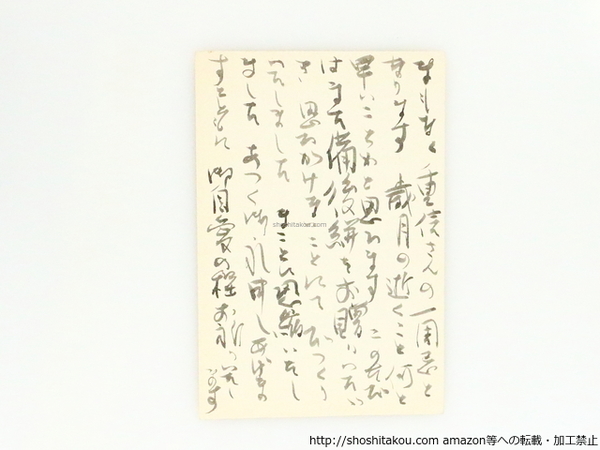 まもなく 重信さんの一周忌と
なります 歳月の逝くこと何と
早いことかと思ひます このたび
はまた備後絣をお贈りいたゞ
き 思ひがけぬことにてびっくり
いたしました まことに恐縮いたし
ました あつく御礼申しあげま
すとともに 御自愛の程お祈りいたし
ます
shoshitakou.com
http://shoshitakou.com amazon等への転載・加工禁止